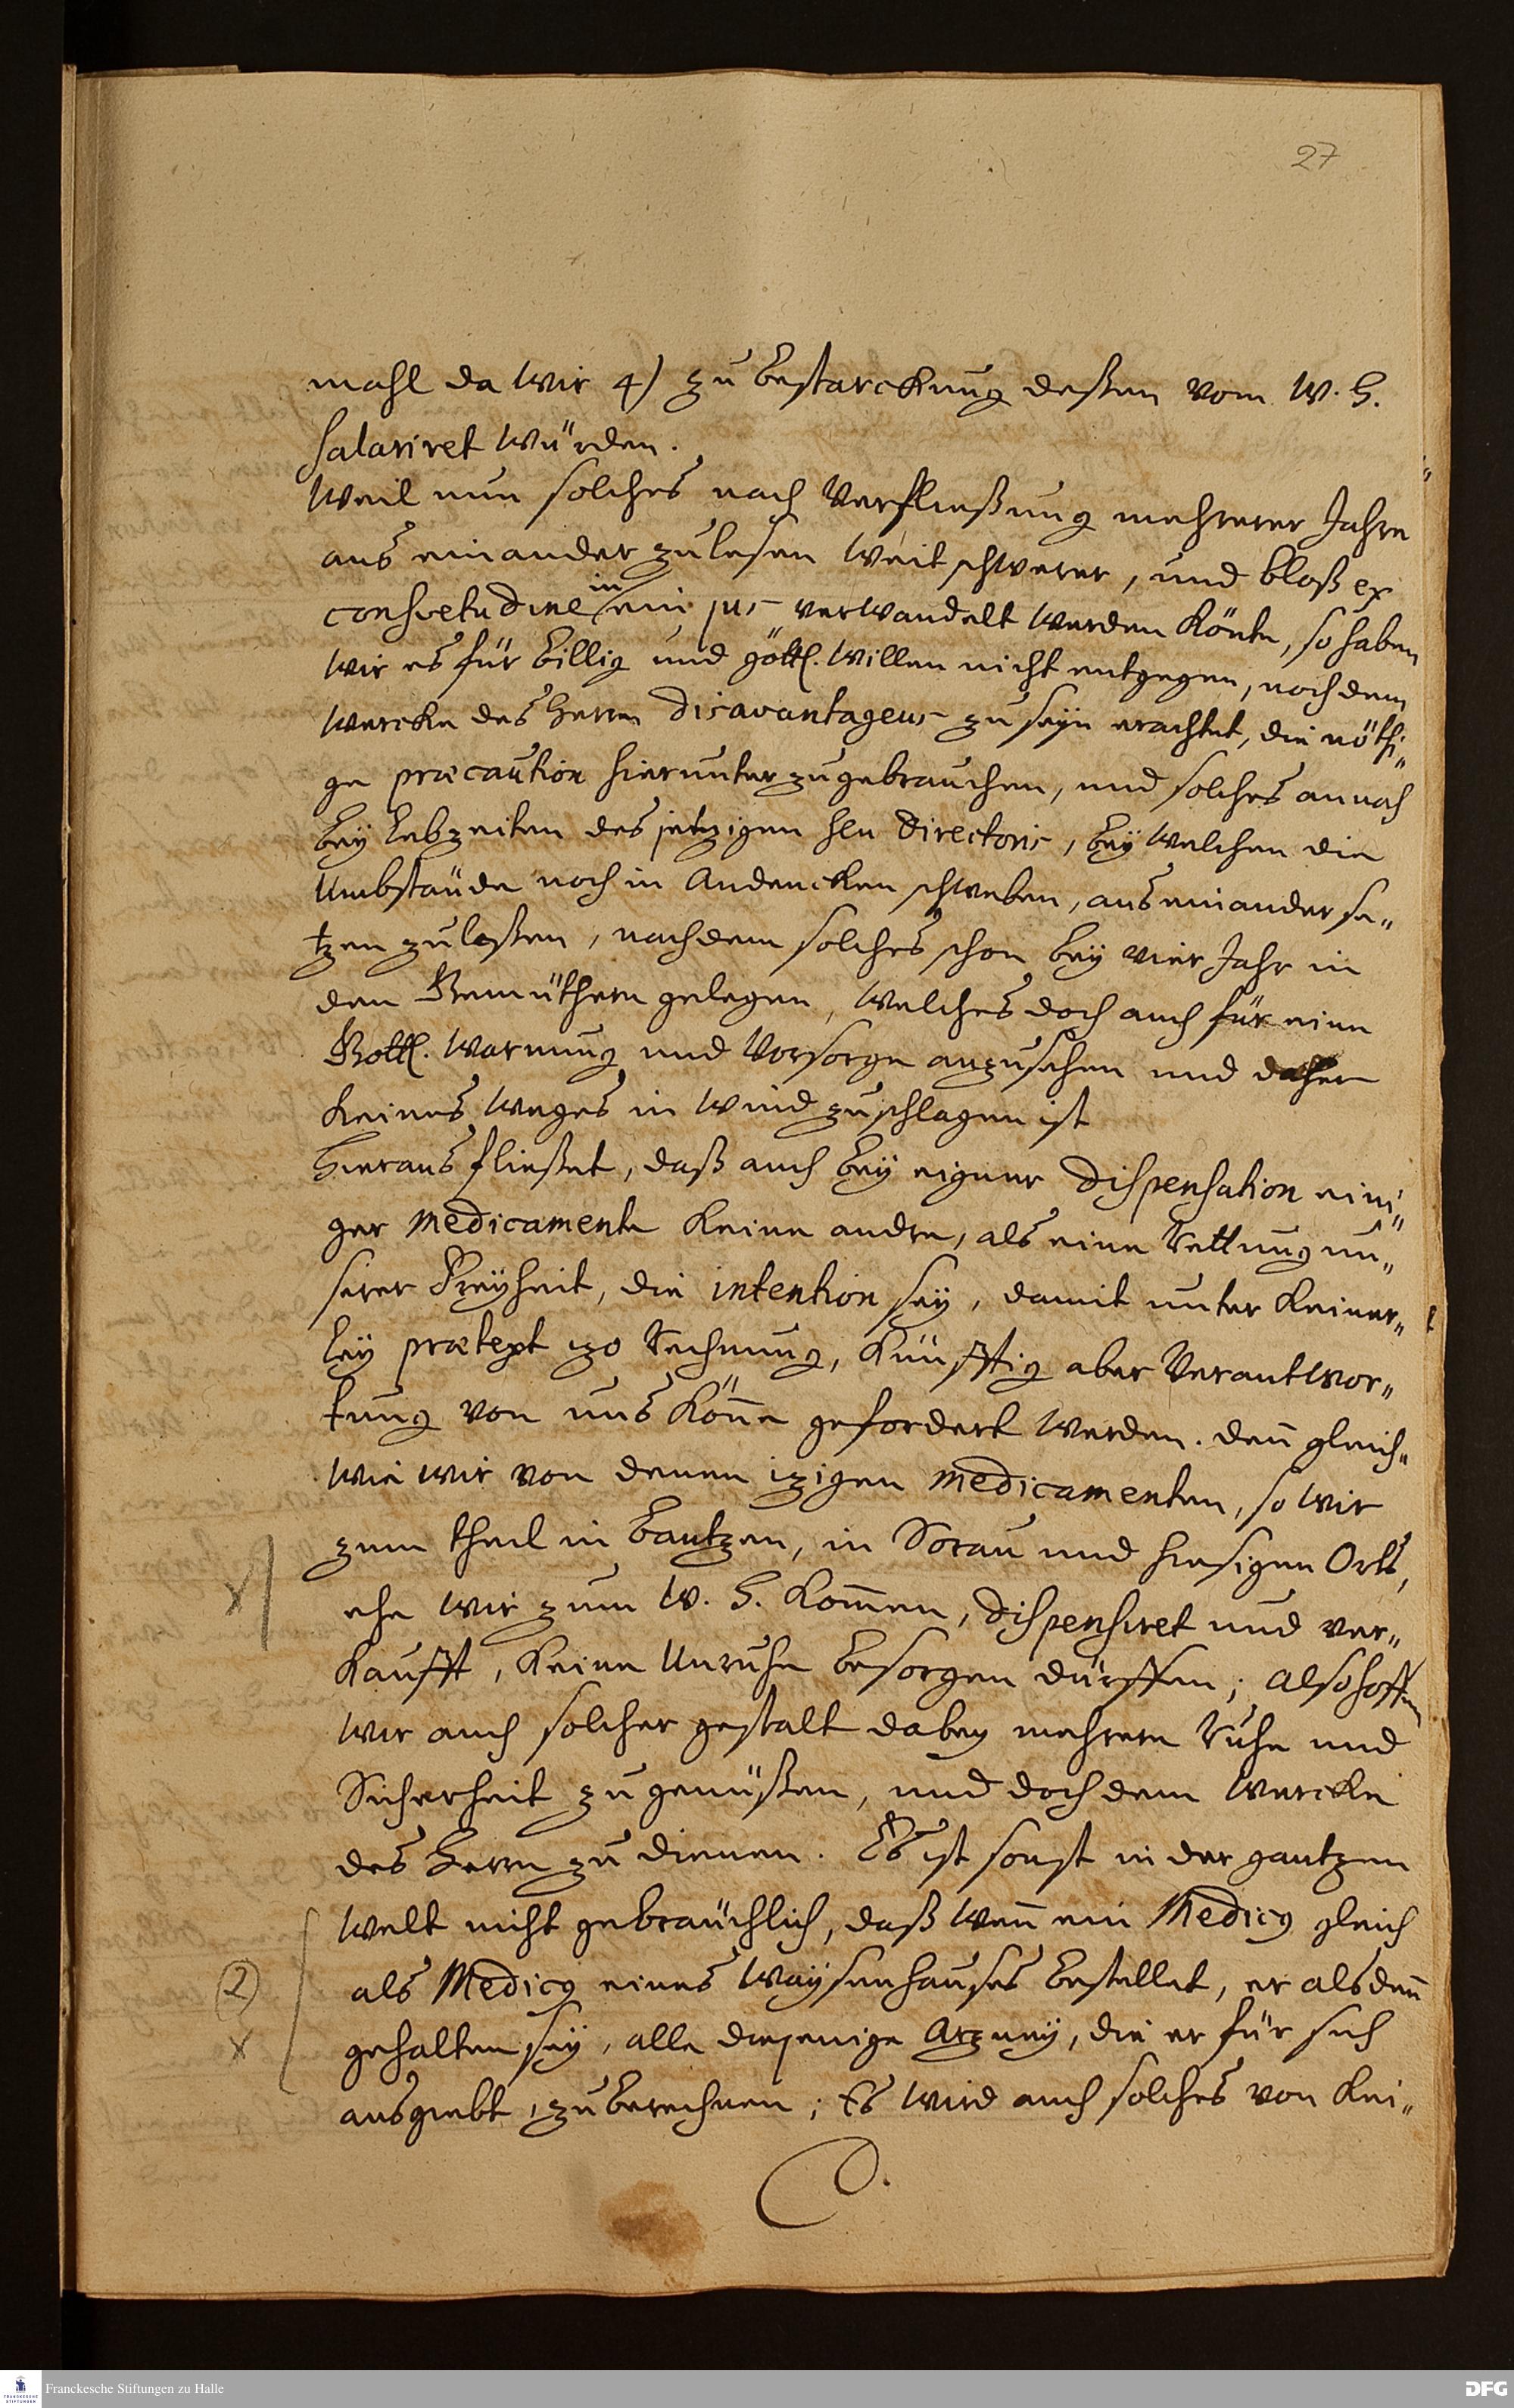 27
mahl da wir 4) zu bestarckung deßen vom W. H.
salariret würden.
Weil nun solches nach Verfließung mehrerer Jahre
aus einander zu lesen weit schwerer, und bloß ex
consvetudine in ein jus verwandelt werden könte, so haben
wir es für billig und göttl. Willen nicht entgegen, noch dem
Wercke des Herrn disavantageus zu seyn erachtet, die nöthi„
ge præcaution hierunter zu gebrauchen, und solches annoch
bey Lebzeiten des jetzigen Hln Directoris, bey welchen die
Umbstände noch in Andencken schweben, aus einander se„
tzen zu laßen, nachdem solches schon bey vier Jahr in
den Gemüthern gelegen, welches doch auch für eine
Göttl. Warnung und Vorsorge anzusehen und daher
keines weges in Wind zu schlagen ist
Hieraus fließet, daß auch bey eigner Dispensation eini„
ger Medicamente keine andre, als eine Rettung un„
serer Freyheit, die intention sey, damit unter keiner„
ley prætext izo Rechnung, künfftig aber Verantwor„
tung von uns köñe gefordert werden. deñ gleich„
wie wir von denen izigen Medicamenten, so wir
zum theil in Bautzen, in Sorau und hiesigen Orts,
x
ehe wir zum W. H. kom̃en, dispensiret und ver„
kaufft, keine Unruhe besorgen dürffen; Also hoffen
wir auch solcher gestalt dabey mehrere Ruhe und
Sicherheit zu genüßen, und doch dem Wercke
des Herrn zu dienen. Es ist sonst in der gantzen
Welt nicht gebräuchlich, daß weñ ein Medicq gleich
2
als Medicq eines Waysenhauses bestellet, er alsdeñ
x
gehalten sey, alle diejenige Arzney, die er für sich
ausgiebt, zu berechnen; Es wird auch solches von kei„
C.
Franckesche Stiftungen zu Halle
FRANCKESCHE STIFTUNGEN
DFG